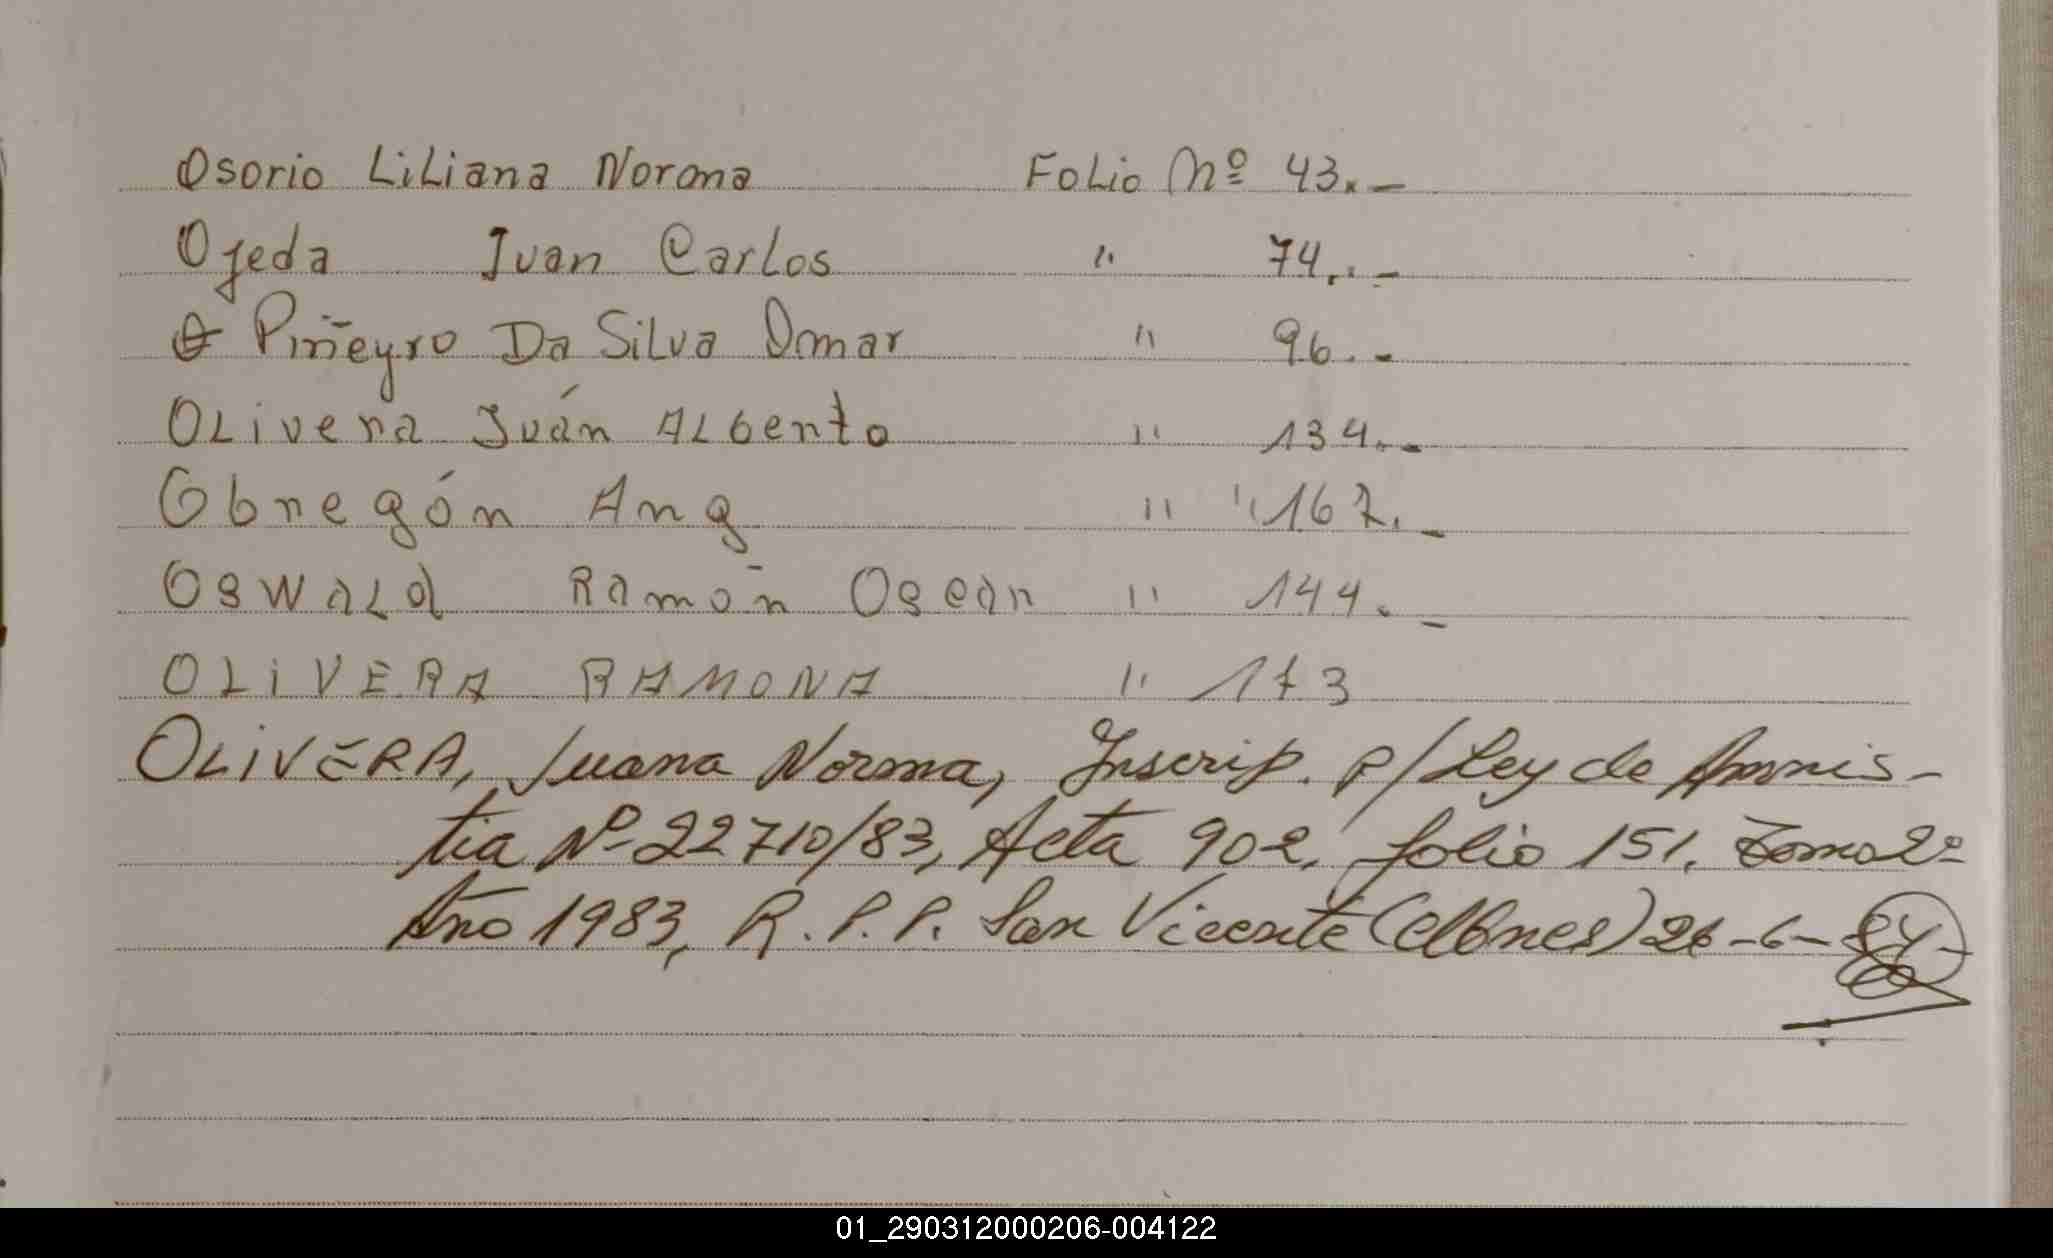 Osorio Liliana Norma Folio Nº 43.-
Ojeda Juan Carlos " 74..-
O Piñeyro Da Silva Omar " 96.-
Olivera Juán Alberto " 134.-
Obregón Ang " " 167.-
Oswald Ramón Oscar " 144.-
OLIVERA RAMONA " 173
OLIVERA, Juana Norma, Inscrip. p/Ley de Amnis-
tia Nº 22710/83, Acta 902, folio 151. Tomo 2º
Año 1983, R.P.P. San Vicente 26-6-84-
01_290312000206-004122